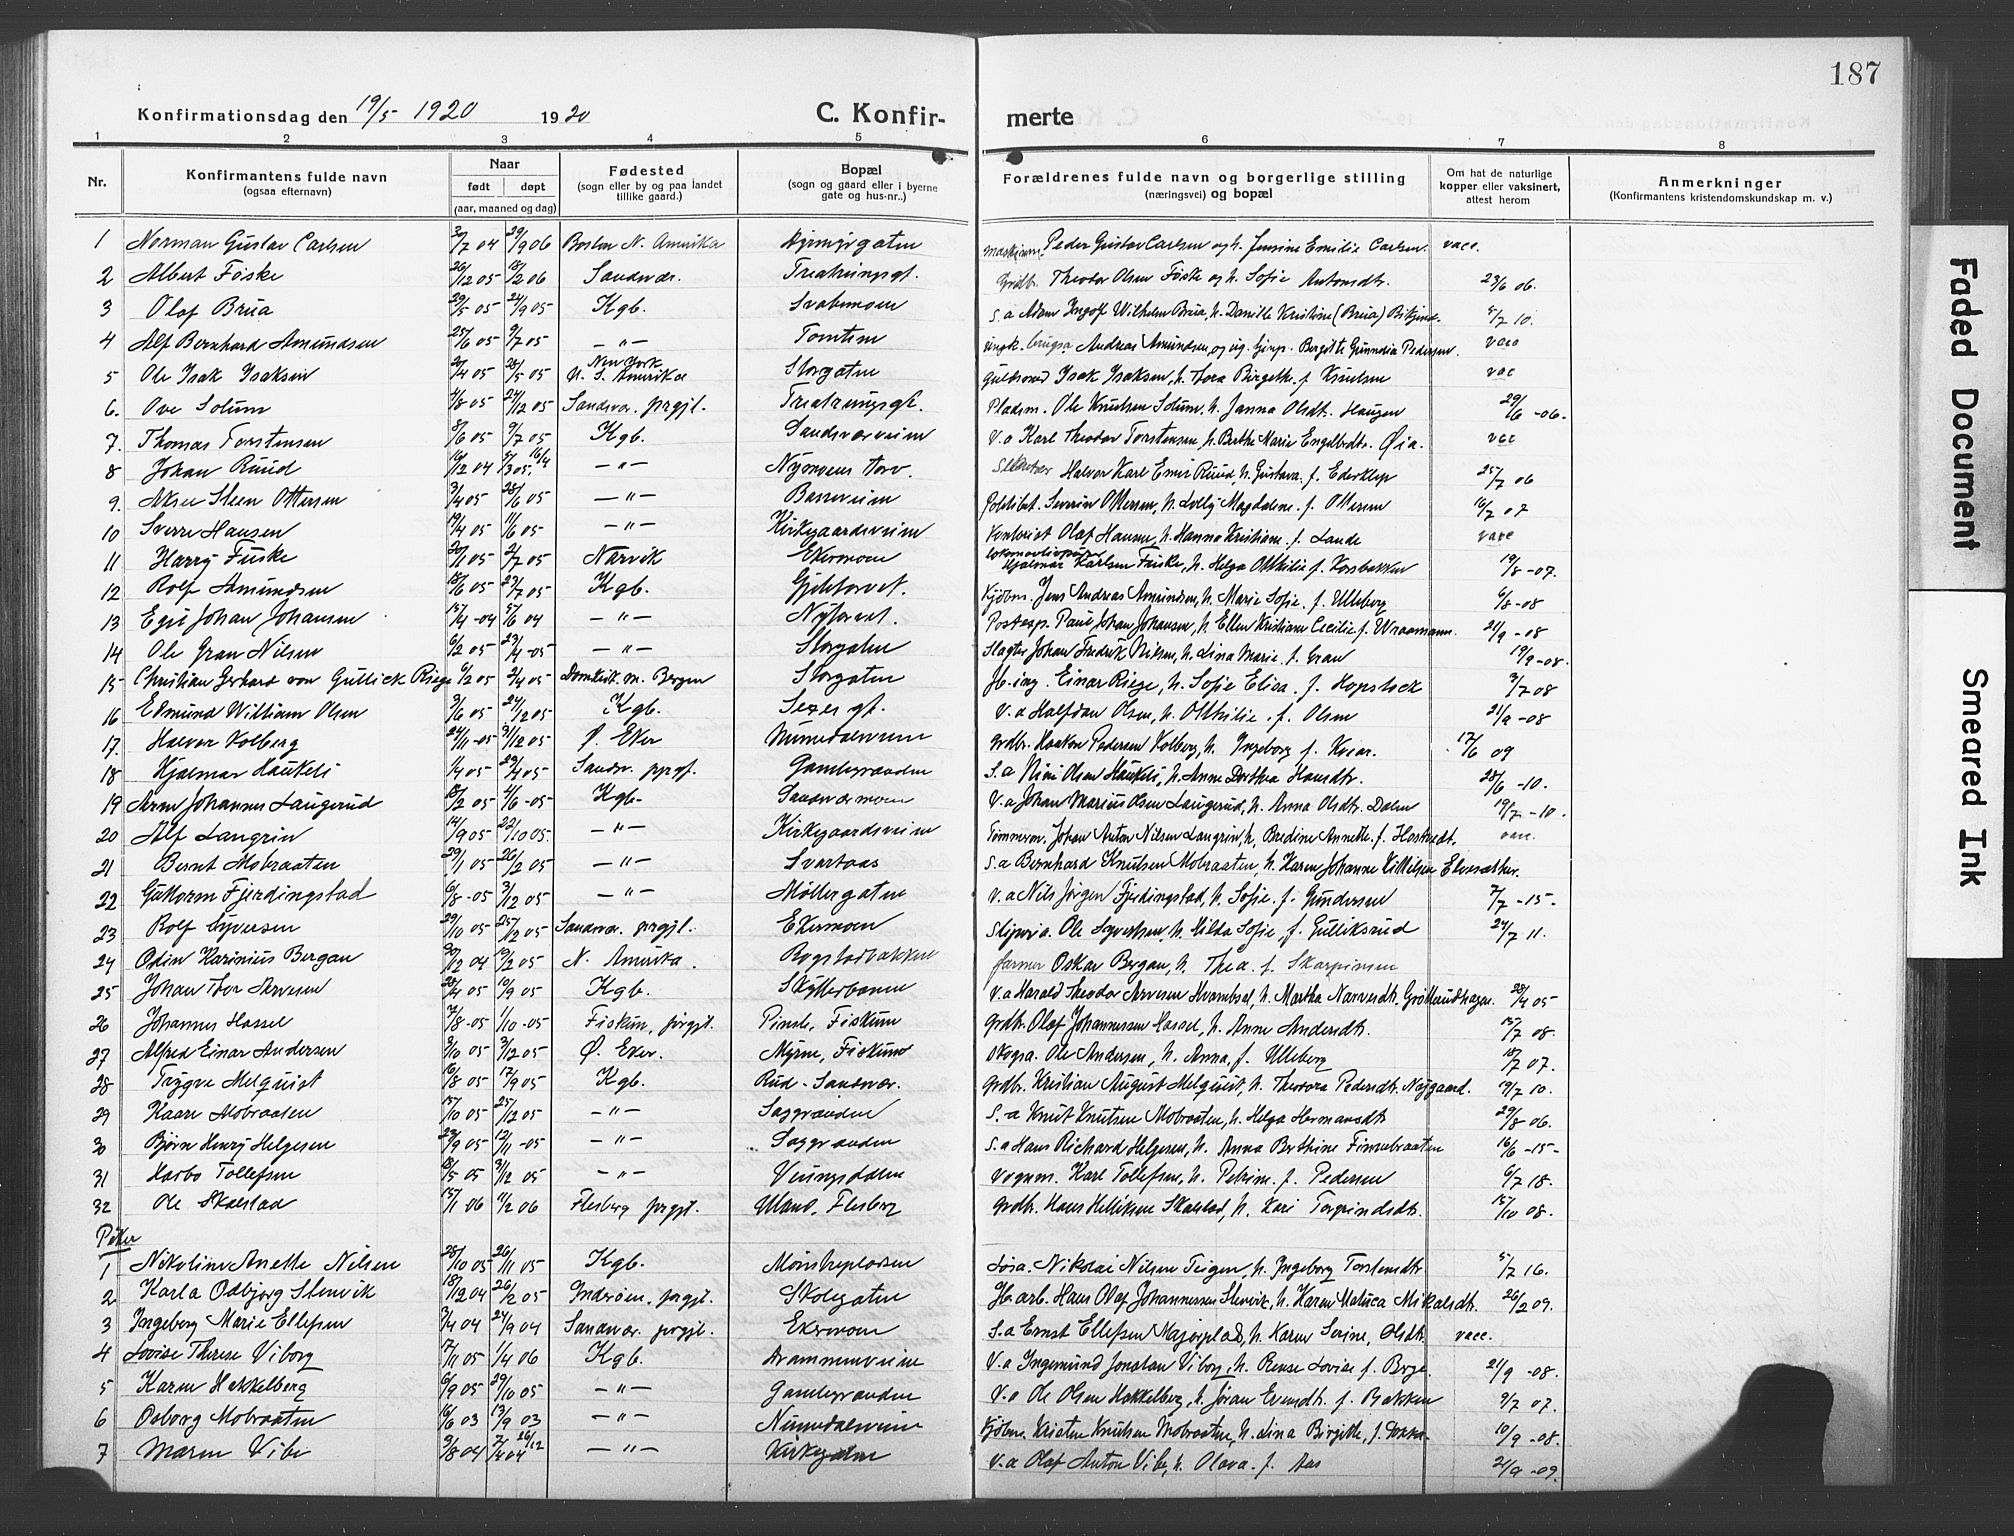 187
Konfirmationsdag den 19/5 1920 1920 C. Konfir- merte
1 2 3 4 5 6 7 8
Nr. Konfirmantens fulde navn (ogsaa efternavn) Naar født døpt (aar, maaned og dag) Fødested (sogn eller by og paa landet tillike gaard.) Bopæl (sogn og gaard eller i byerne gate og hus-nr.) Forældrenes fulde navn og borgerlige stilling (næringsvei) og bopæl Om hat de naturlige kopper eller vaksinert, attest herom Anmerkninger (Konfirmantens kristendomskundskap m. v.)
1 Norman Gustav Carlsen 30/7 04 29/9 06 Boston N. Amerika Peder Gustav Carlsen og h. Jensine Emilie Carlsen vacc.
2 Albert Foske 26/12 05 18/2 06 Sandsvær. Treatningsgt. Grdbr. Theodor Olsen Foske og h. Sofie Antonsdtr. 23/6 06.
3 Olaf Brua 29/5 05 24/9 05 Kgb. Svabemoen S. a Adam Ingolf Wilhelm Brua, h. Danilla Kristine (Brua) 5/7 10.
4 Alf Bernhard Amundsen 25/6 05 9/7 05 — " — Tomtem Andreas Amundsen, og Bergitte Gunnelia Pedersen. vacc
5 Ole Isak Isaksen 20/4 05 28/5 05 New York U. S. Amerika Storgaten Guldsmed Isak Isaksen, h. Thora Birgithe f. Knutsen vac
6. Ove Solum 4/8 05 24/12 05 Sandsvær. prgjl. Treatningsgt. Pladsm. Ole Knutsen Solum, h. Janna Olsdt. Haugen 29/6 -06.
7. Thomas Torstensen 8/6 05 9/7 05 Kgb. Sandsværveien V. a Karl Theodor Torstensen, h. Berthe Marie Engebrdtr. Øia. vac
8 Johan Ruud 16/12 04 — " — Nymoens torv. Sekretær Halvor Karl Emil Ruud, h. Gustava f. Ederklep 25/7 06
9. Aksel Steen Ottersen 3/4 05 28/6 05 — " — Basseveien Politibet. Severin Ottersen, h. Lolly Magdalene f. Ottersen 16/7 07
10 Sverre Hansen 19/4 05 11/6 05 — " — Kirkegaardsveien Kontorist Olaf Hansen, h. Hanna Kristiane f. Lande vacc
11 Harry Fuske 20/1 05 2/7 05 Narvik Ekermoen Hjalmar Karlsen Fuske, h. Helga Otthilie f. Korsbakken 19/8 -07.
12 Rolf Amundsen 18/6 05 23/7 05 Kgb. Gjeltetorvet. Kjøbm. Jens Andreas Amundsen, h. Marie Sofie f. Ulleberg 6/8 -08
13 Egil Johan Johansen 15/4 -04 5/6 04 — " — Nytorvet. Postexp. Paul Johan Johansen, h. Ellen Kristiane Cecilie f. Wraamann. 21/9 -08
14 Ole Gran Nilsen 6/2 05 23/4 -05 — " — Storgaten Slagter Johan Fredrik Nilsen, h. Lina Marie f. Gran 19/9 -08.
15 Christian Gerhard von Gullick Riege 6/2 05 2/4 05 Domkirk. m. Bergen Storgaten Jb.-ing. Einar Riege, h. Sofie Elisa f. Hopstock 3/7 08
16 Edmund William Olsen 3/6 05 24/12 05 Kgb. gt. V. a Halfdan Olsen, h. Otthilie f. Olsen 21/9 -08
17. Halvor Kolberg 24/11 -05 31/12 05 Ø. Eker Numedalsveien Grdbr. Haakon Pedersen Kolberg, h. Ingeborg f. Kvar. 17/6 09
18 Hjalmar Haukeli 1/4 05 29/4 05 Sandsv. prgj. Gamlegranden S. a Olsen Haukeli, h. Anne Dorthea Hansdtr. 28/6 -10.
19 Arne Johannes Laugerud 18/2 05 4/6 -05 Kgb. Sandsværmoen V. a Johan Marius Olsen Laugerud, h. Anna Olsdtr. Dalen 19/7 -10.
20 Alf Langrin 14/9 05 22/10 05. — " — Kirkegaardsveien Tømmerm. Johan Anton Nilsen Langrin, h. Bredine Annette f. Hostvedt. vacc.
21 Bernt Mobraaten 29/1 05 26/2 05 — " — Svartaas S. a Bernhard Knutsen Mobraaten, h. Karen Johanne Kittilsen Elvesæther.
22 Guttorm Fjerdingstad 6/8 -05 3/12 05 — " — Møllergaten V. a Nils Jørgen Fjerdingstad, h. Sofie f. Gundersen 7/7 -15-
23 Rolf Syversen 29/10 05 25/12 05 Sandsvær. prgjl. Ekermoen Ole Syvertsen, h. Hilda Sofie f. Gulliksrud 24/7 11.
24 Odin Karinius Bergan 30/12 04 19/2 05 N. Amerika. Rogstadbakken farmer Oskar Bergan, h. Thea f. Skarpinsen
25 Johan Thor Arvesen 28/4 05 10/9 05 Kgb. Skytterbanen V. a Harald Theodor Arvesen Hvambsal, h. Martha Narvesdt. Grøtlaudhagen. 28/4 05
26 Johannes Hassel 7/8 -05 1/10 -05 Fiskum, prgjl. Fiskum Grdbr. Olaf Johannessen Hassel, h. Anne Andersdtr. 15/7 08.
27 Alfred Einar Andersen 3/10 05 3/12 05 Ø. Eker. Myrne, Fiskum Skogsa. Ole Andersen, h. Anna f. Ulleberg 18/7 07.
28 Trygve Melquist 16/8 05 17/9 05 Kgb. Rud - Sandsvær. Grdbr. Kristian August Melquist, h. Theodora Pedersdtr. Nygaard. 19/7 10.
29 Kaare Mobraaten 15/10 05 25/12 05 — " — Saggranden S. a Knut Knutsen Mobraaten, h. Helga Hermansdtr 29/8 06.
30 Bjørn Henry Helgesen 29/9 05 12/11 -05 — " — Saggranden S. a Hans Richard Helgesen, h. Anna Berthine Finnebraaten 16/6 -15-
31 Tollefsen 18/5 05 31/12 05 — " — Vognm. Karl Tollefsen, h. Petrine f. Pedersen 6/7 18.
32 Ole Skalstad 15/1 06 11/2 06 Flesberg prgjl. Uland, Flesberg Grdbr. Hans Helliksen Skalstad, h. Kari Torgrindsdtr. 15/10 08.
Piker
1 Nikoline Anette Nilsen 28/10 05 26/11 05 Kgb. Løsa. Nikolai Nilsen Teigen, h. Ingeborg Torstensdtr 5/7 16.
2 Karla Odbjørg Stenvik 18/12 04 26/2 05 Inderøen, prgjl. Skolegaten Hans Olaf Johannessen Stenvik, h. Karen Mikalsdt. 26/2 09.
3 Ingeborg Marie Ellefsen 3/4 04 24/9 04 Sandsvær. prgjl. Ekermoen S. a Ernst Ellefsen Majorplads, h. Karen Serine, Olsdt. vacc.
4 Lovise Therese Viborg 17/11 05 1/4 06 Kgb. Drammensveien V. a Ingemund Jonatan Viborg, h. Lovise f. Berge 21/9 -08.
5 Karen Hekkelberg 6/9 05 29/10 05 — " — Gamlegranden V. a Ole Olsen Hekkelberg, h. Jøran Evensdt. f. Bakken 9/7 07.
6 Osborg Mobraaten 16/6 03 13/9 03 — " — Numedalsveien Kjøbm. Kristen Knutsen Mobraaten, h. Lina Birgitte, f. 10/9 -08.
7 Maren Vibe 9/8 04 — " — Kirkegaten V. a Olaf Anton Vibe, h. Olava f. Aas 21/9 -09.
Faded Document
Smeared Ink